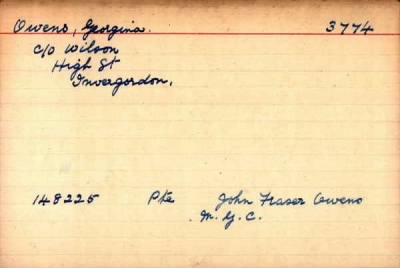 Owens, Georgina. 3774
c/o Wilson
High St
Invergordon.
148225 Pte John Fraser Owens
M.G.C.